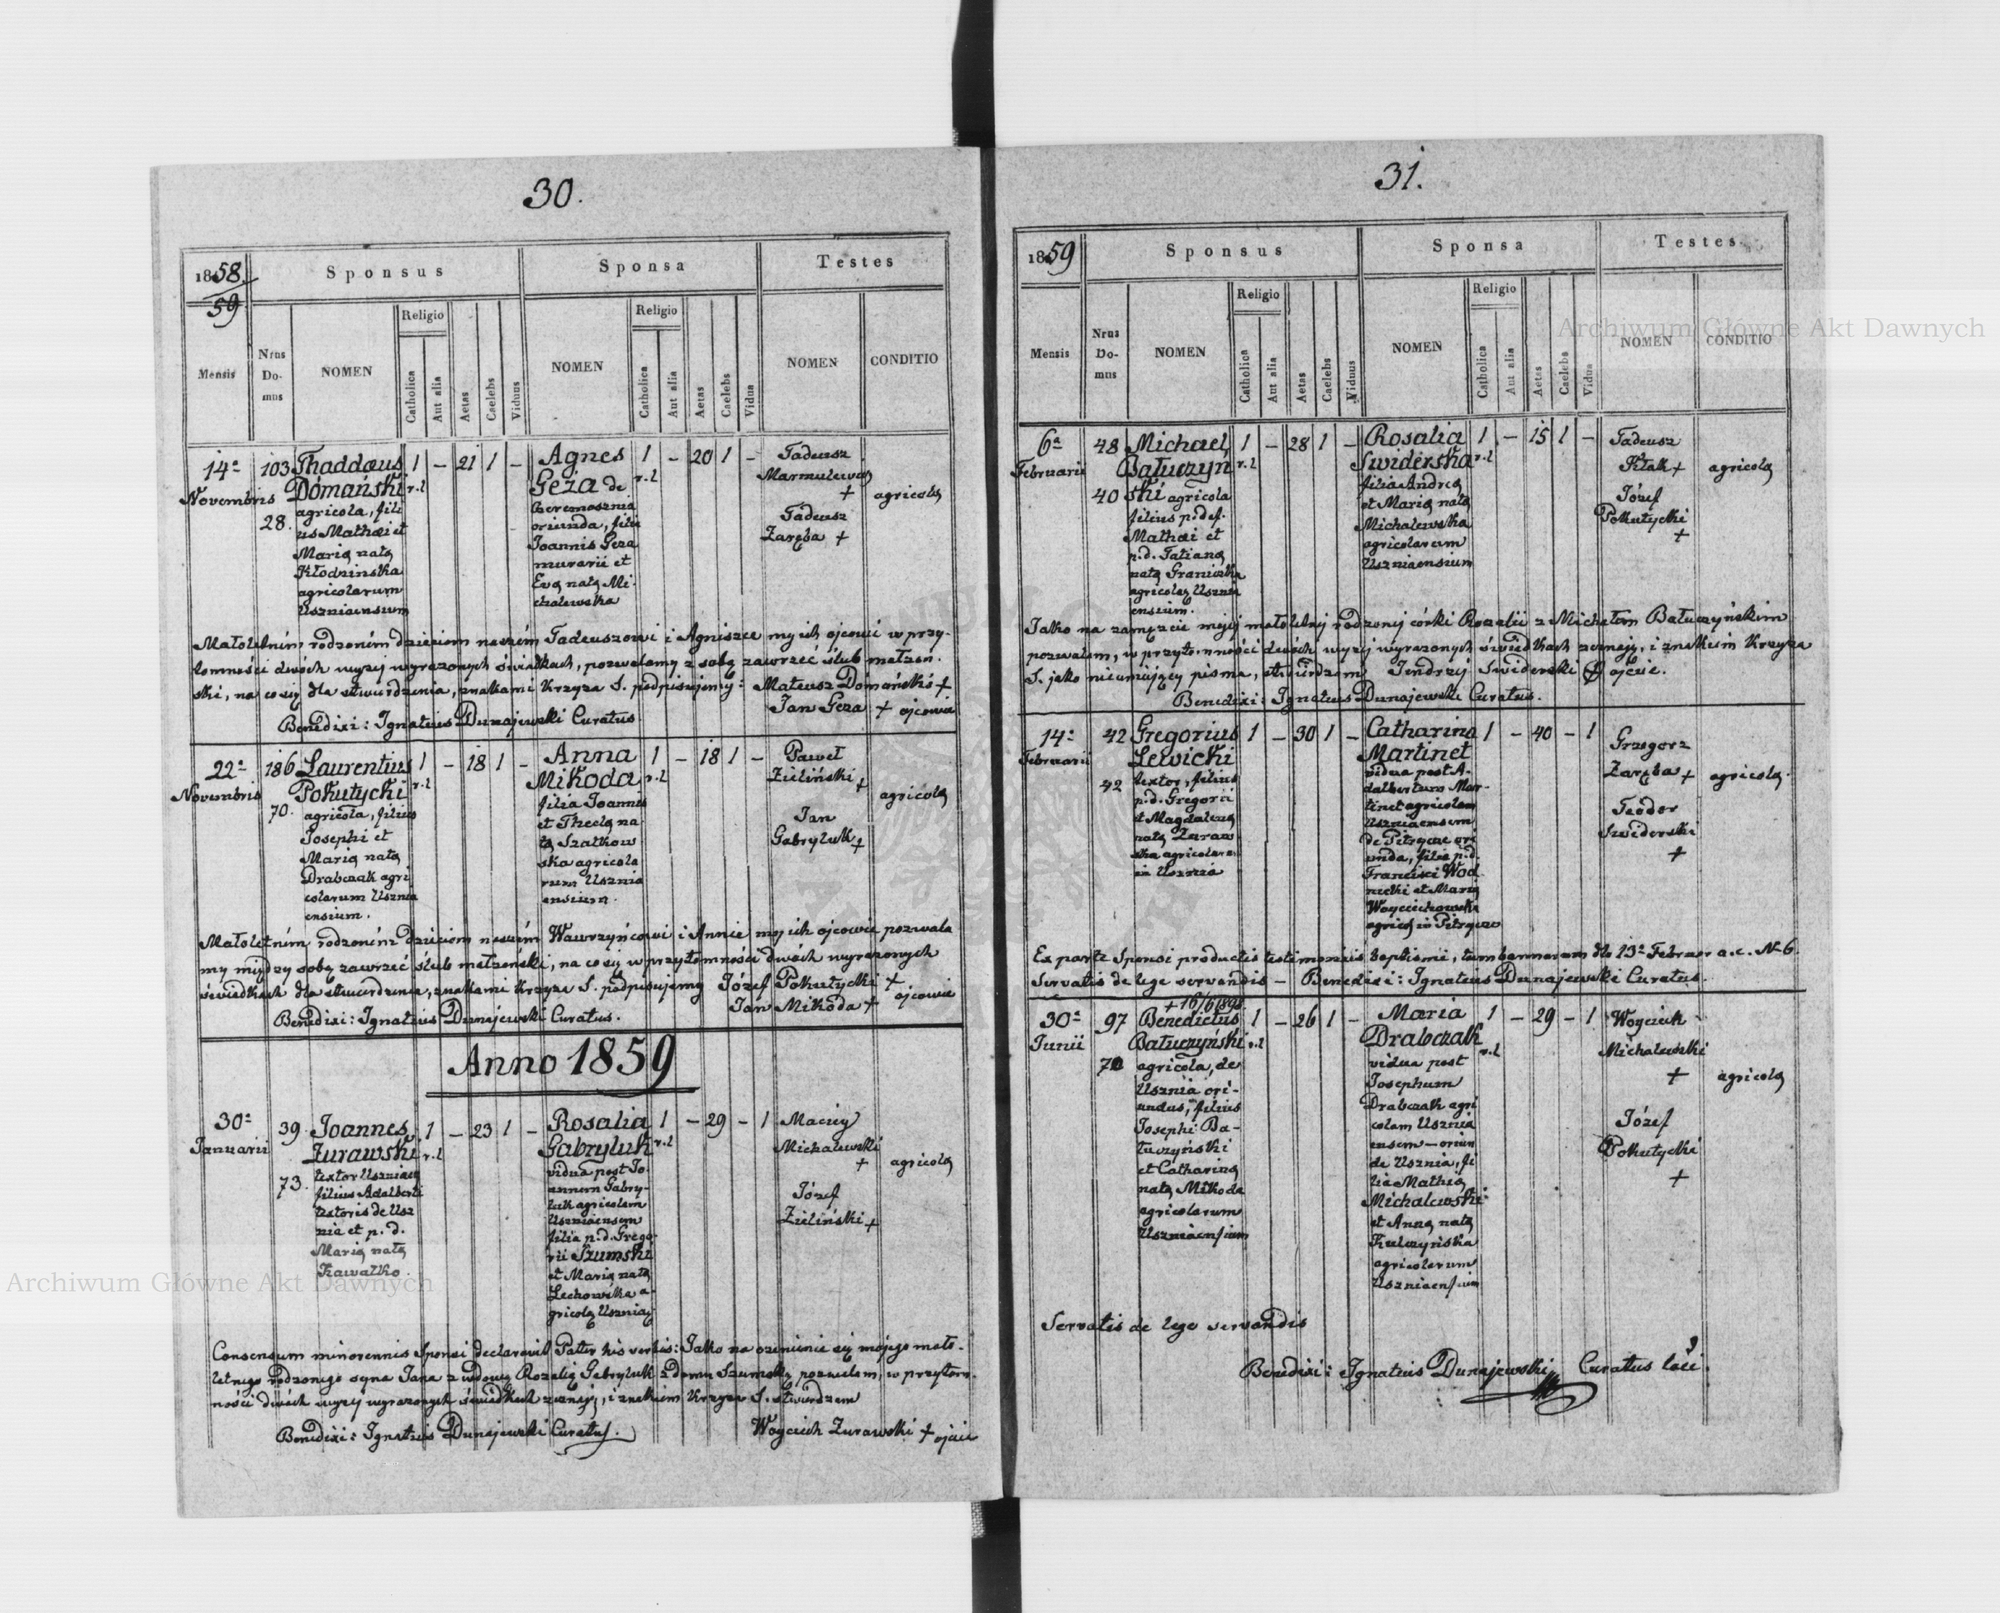 30.
1858.
59
Sponsus
Sponsa
Testes
Mensis
Nrus Do- mus
NOMEN
Religio
Catholica
Aut alia
Aetas
Caelebs
Viduus
NOMEN
Religio
Catholica
Aut alia
Aetas
Caelebs
Vidua
NOMEN
CONDITIO
14a
Novembris
103
28.
Thaddæus
Dómański
agricola, fili
us Mathæi et
Mariæ natæ
Kłodzinska
agricolarum
Uszniaensium
1
r.l
–
21
1
–
Agnes
Geża de
Beremosznia
oriunda, filia
Joannis Geza
murarii et
Evæ natæ Mi-
chalewska
1
r.l
–
20
1
–
Tadeusz
+
Tadeusz
Zaręba +
agricolæ
Małoletnim rodzonim dzieciom naszém Tadeuszowi i Agniszce my ich ojcowie w przy-
tomności dwóch wyzij wyrazonych świadkach, pozwalamy z sobą zawrzeć ślub małzeń-
ski, na co się dla stwierdzenia, znakami krzyza S. podpisujemy: Mateusz Dómański +
Jan Geza + ojcowie
Benedixi: Ignatius Dunajewski Curatus
22a
Novembris
186
70.
Laurentius
Pokutycki
agricola, filius
Josephi et
Mariæ natæ
Drabczak agri
colarum Usznia
ensium.
1
r.l
–
18
1
–
Anna
Mikoda
filia Joannis
et Theclæ na-
tæ Szatkow
ska agricola
rum Usznia
ensium.
1
r.l
–
18
1
–
Paweł
Zieliński
+
Jan
Gabryluk +
agricolæ
Małoletnim rodzonim dzieciom naszém Wawrzyńcowi i Annie my ich ojcowie pozwala
my między sobą zawrzeć ślub małzeński, na co się w przytomności dwóch wyrazonych
świadkach dla stwierdzenia, znakami krzyza S. podpisujemy Józef Pokutycki +
Jan Mikoda + ojcowie
Benedixi: Ignatius Dunajewski Curatus.
Anno 1859
30a
Januarii
39.
73.
Joannes
Zurawski
textor Uszniaen
filius Adalberti
textoris de Usz
nia et p. d.
Mariæ natæ
Kawałko.
1
r.l
–
23
1
–
Rosalia
Gabryluk
vidua post Jo-
annem Gabry-
luk agricolam
Uszniaensem
filia p. d. Grego-
rii Szumski
et Mariæ natæ
Lechowska a-
gricolæ Uszniaæ
1
r.l
–
29
–
1
Maciey
Michalewski
+
Józef
Zieliński +
agricolæ
Consensum minorennis Sponsi declaravit Pater his verbis: Jako na ozenienie się mojego mało-
letniego rodzonego syna Jana z wdową Rozalią Gabryluk z domu Szumską pozwalam, w przytom-
ności dwóch wyzij wyrazonych świadkach zeznaję, i znakiem krzyza S. stwierdzam
Woyciech Zurawski + ojciec
Benedixi: Ignatius Dunajewski Curatus.
31.
1859
Sponsus
Sponsa
Testes
Mensis
Nrus Do- mus
NOMEN
Religio
Catholica
Aut alia
Aetas
Caelebs
Viduus
NOMEN
Religio
Catholica
Aut alia
Aetas
Caelebs
Vidua
NOMEN
CONDITIO
6a
Februarii
48
40
Michael
Bałuczyń
ski agricola
filius p: def.
Mathæi et
p. d. Tatianæ
natæ Graniczka
agricolæ Usznia
ensium.
1
r.l
–
28
1
–
Rosalia
Swiderska
filia Andreæ
et Mariæ natæ
Michalewska
agricolarum
Uszniaensium
1
r.l
–
15
1
–
Tadeusz
Kłak +
Józef
Pokutycki
+
agricolæ
Jako na zamęzcie mojej małoletnej rodzonej córki Rozalii z Michałem Bałuczyńskim
pozwalam, w przytomności dwóch wyzij wyrazonych świadkach zeznaję, i znakiem krzyza
S. jako nieumiejący pisma, stwierdzam Jendrzij Swiderski + ojcie.
Benedixi: Ignatius Dunajewski Curatus.
14a
Februarii
42
42
Gregorius
Lewicki
textor, filius
p. d. Gregorii
et Magdalenæ
natæ Zuraw
ska agricolarum
in Usznia
1
–
30
1
–
Catharina
Martinet
vidua post A-
dalbertum Mar-
tinet agricolam
Uszniaensem
de Pitrycze ori
unda, filia p. d.
Francisci Wod
nicki et Mariæ
Woyciechowska
agricol in Pitrycze
1
–
40
–
1
Grzegorz
Zaręba +
Teodor
Swiderski
+
agricolæ
Ex parte Sponsi productis testimoniis baptismi, tum bannorum dto 13a Februar a. c. N. 6.
Servatis de lege servandis – Benedixi: Ignatius Dunajewski Curatus.
30a
Junii
97
70
Benedictus
Bałuczyński
agricola, de
Usznia ori-
undus, filius
Josephi Ba-
łuczyński
et Catharinæ
natæ Mikoda
agricolarum
Uszniaensium
1
r.l
–
26
1
–
Maria
Drabczak
vidua post
Josephum
Drabczak agri
colam Usznia
ensem – oriun
de Usznia, fi
lia Mathiæ
Michalewski
et Annæ natæ
Kulczyńska
agricolarum
Uszniaensium
1
r.l
–
29
–
1
Woyciech
Michalewski
+
Józef
Pokutycki
+
agricolæ
Servatis de lege servandis
Benedixi: Ignatius Dunajewski Curatus loci.
Archiwum Główne Akt Dawnych
Archiwum Główne Akt Dawnych